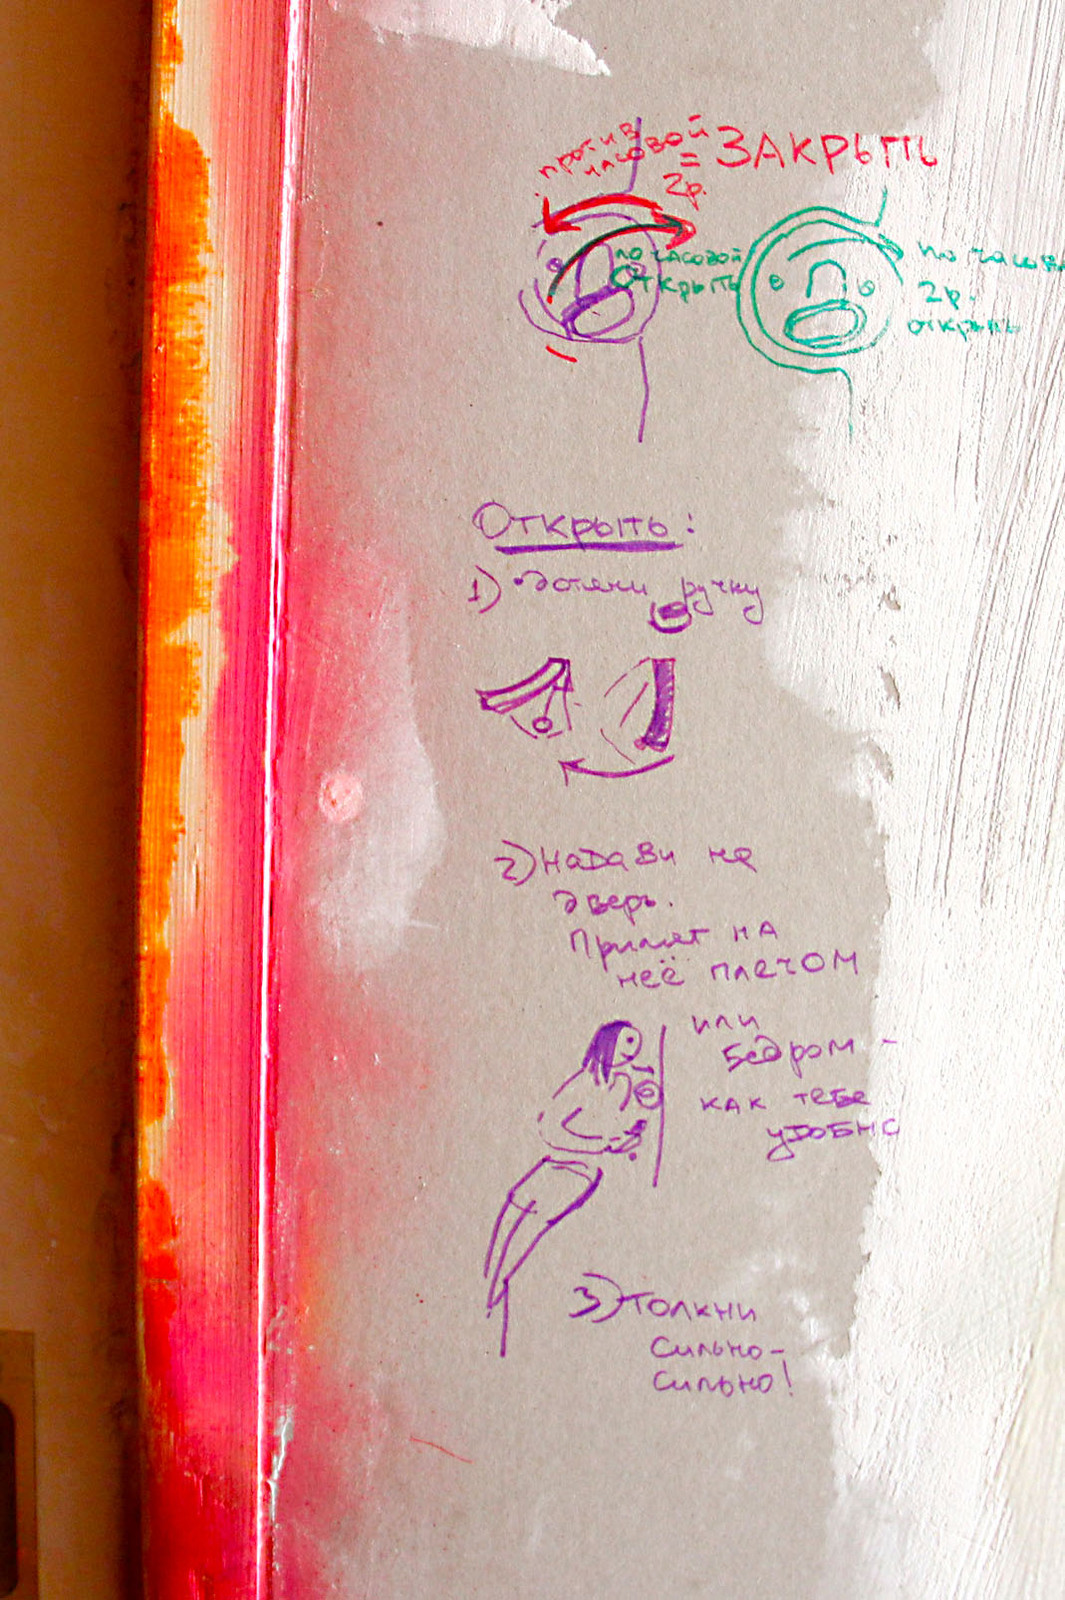 против
часовой
= ЗАКРЫТЬ
2р.
по часовой
открыть
по часовой
2р.
открыть
Открыть:
1) • Дотяни ручку
2) Надави на
дверь.
Приляг на
неё плечом
или
бедром -
как тебе
удобно
3) Толкни
сильно-
сильно!